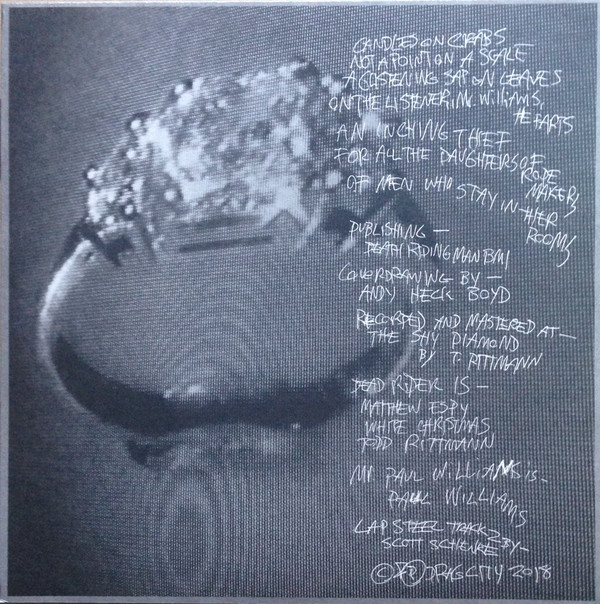 CANDLES ON CRABS —
NOT A POINT ON A SCALE
A GLISTENING SAP ON LEAVES
ON THE LISTENERING WILLIAMS,
HE FARTS
AN INCHING THIEF
FOR ALL THE DAUGHTERS OF
ROPE
MAKERS
OF MEN WHO STAY IN HER
ROOMS
PUBLISHING —
DEATH RIDING MAN BMI
COVER DRAWING BY —
ANDY HECK BOYD
RECORDED AND MASTERED AT —
THE SHY DIAMOND
BY T. RITTMANN
DEAD RIDER IS —
MATTHEW ESPY
WHITE CHRISTMAS
TODD RITTMANN
MR. PAUL WILLIAMS IS —
PAUL WILLIAMS
LAP STEEL TRACK 2 BY —
SCOTT SCHENKE
©℗ DRAG CITY 2018